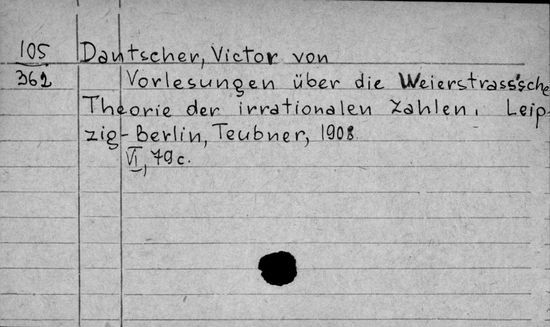 105 Dantscher, Victor von
362 Vorlesungen über die Weierstrass'sche
Theorie der irrationalen Zahlen. Leip-
zig-Berlin, Teubner, 1908.
VI, 79 c.